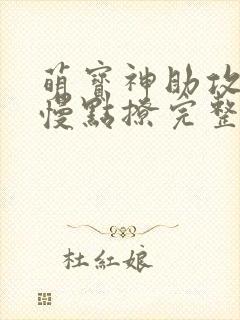 萌寶神助攻
慢點撩完整
杜紅娘